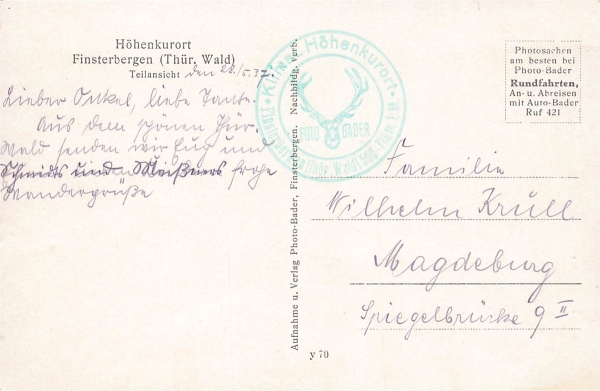 Höhenkurort
Finsterbergen (Thür. Wald)
Teilansicht den 28./5.37.
Lieber Onkel, liebe Tante.
Aus dem schönen Thür.
Wald senden wir Euch und
Schmidts und Meißners frohe
Wandergrüße
Aufnahme u. Verlag Photo-Bader, Finsterbergen. Nachbildg. verb.
Höhenkurort
BADER
y 70
Photosachen
am besten bei
Photo-Bader
Rundfahrten,
An- u. Abreisen
mit Auto-Bader
Ruf 421
Familie
Wilhelm Krüll
Magdeburg
Spiegelbrücke 9 II